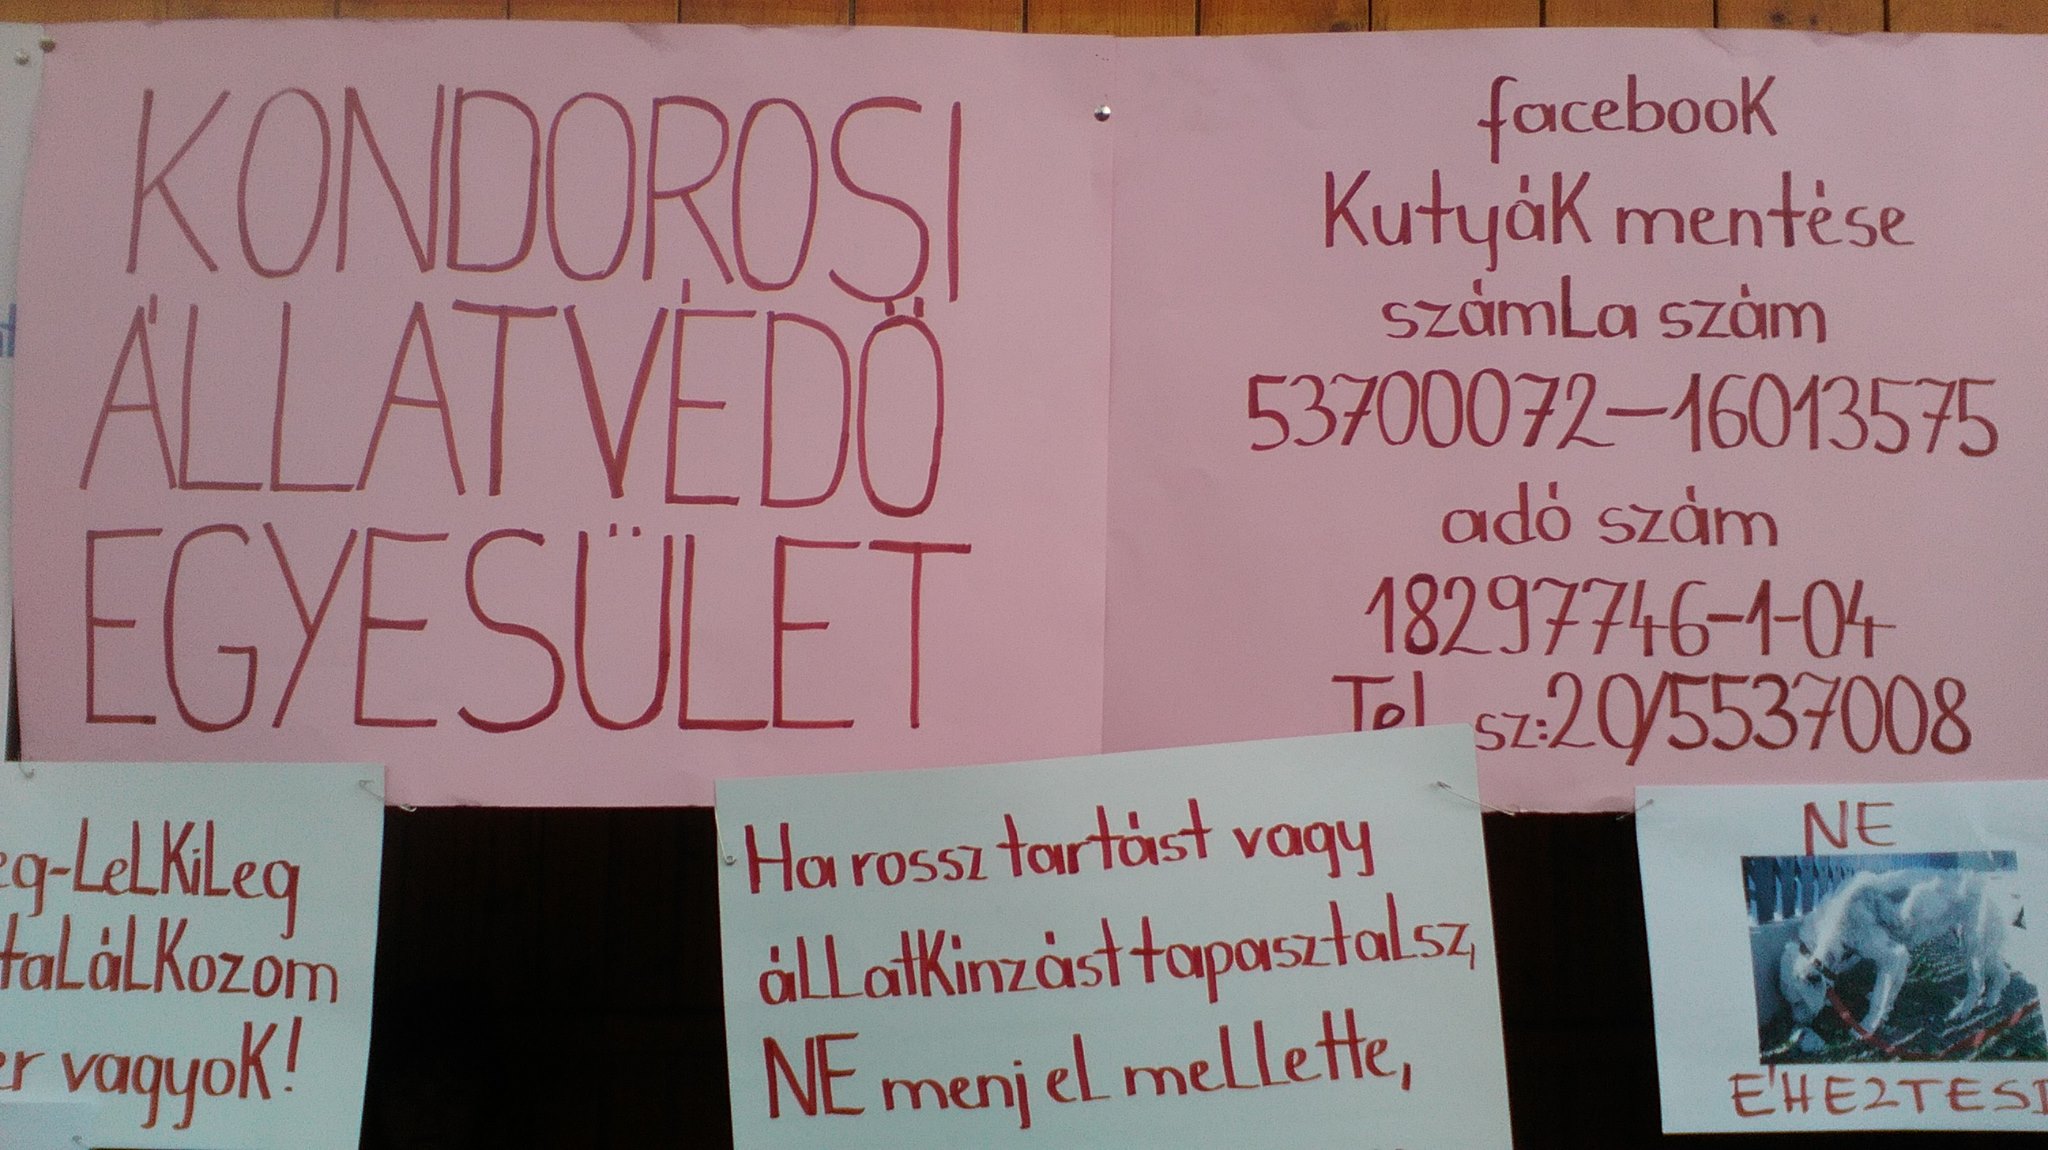 KONDOROSI
ÁLLATVÉDŐ
EGYESÜLET
facebook
Kutyák mentése
számla szám
53700072-16013575
adó szám
18297746-1-04
Tel sz:20/5537008
eg-lelkileg
találkozom
er vagyok!
Ha rossz tartást vagy
állatkinzást tapasztalsz,
NE menj el mellette,
NE
ÉHEZTESD